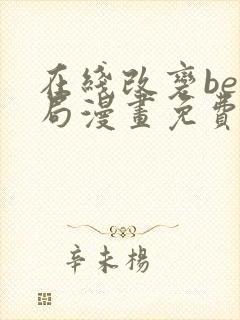 在綫改變be
局漫畫免費
辛未楊